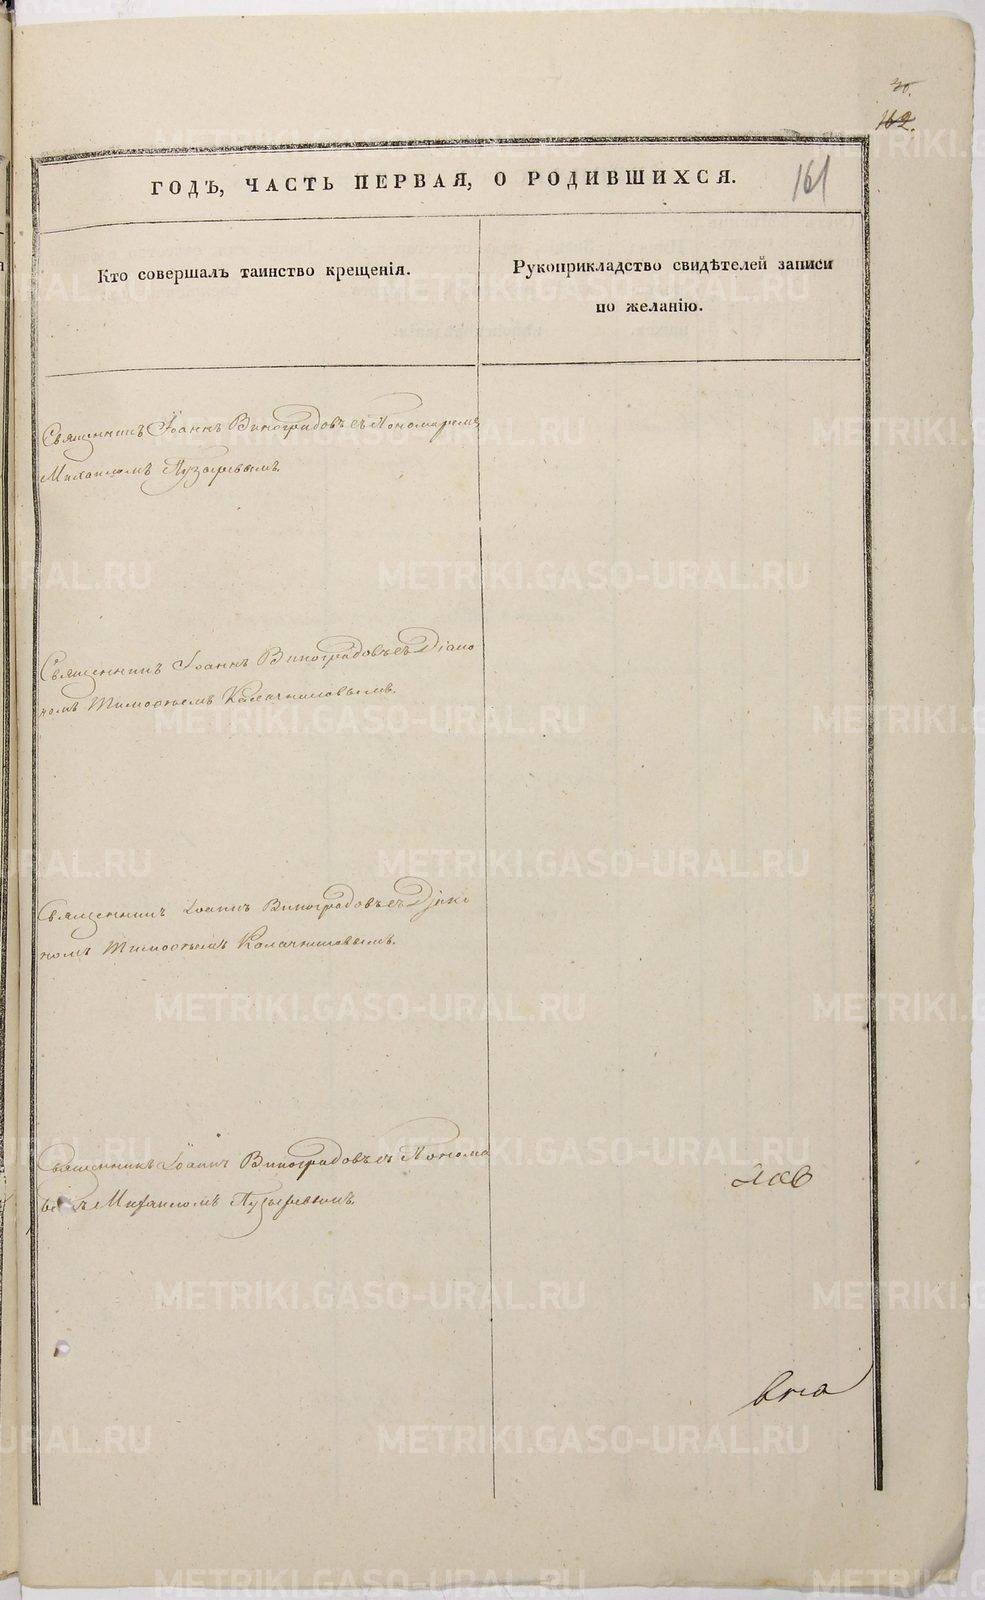 30.
162.
161
ГОДЪ, ЧАСТЬ ПЕРВАЯ, О РОДИВШИХСЯ.
Кто совершалъ таинство крещенія.
Рукоприкладство свидѣтелей записи
по желанію.
Священникъ Іоаннъ Виноградовъ съ Пономаремъ
Михаиломъ Пузыревымъ.
Священникъ Іоаннъ Виноградовъ съ Діако
номъ Тимофеемъ Калачниковымъ.
Священникъ Іоаннъ Виноградовъ съ Діако
номъ Тимофеемъ Калачниковымъ.
Священникъ Іоаннъ Виноградовъ съ Понома
Михаиломъ Пузыревымъ.
METRIKI.GASO-URAL.RU